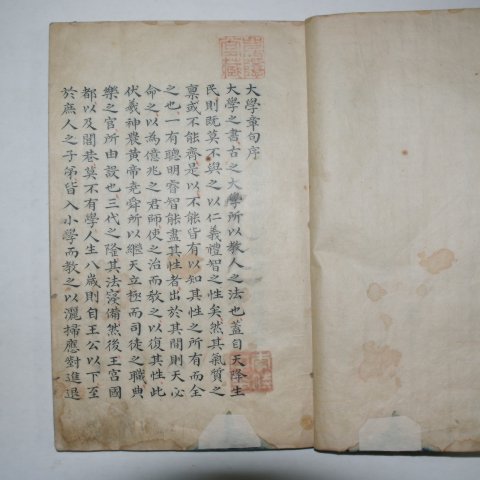 大學章句序
大學之書古之大學所以敎人之法也蓋自天降生
民則既莫不與之以仁義禮智之性矣然其氣質之
禀或不能齊是以不能皆有以知其性之所有而全
之也一有聰明睿智能盡其性者出於其間則天必
命之以為億兆之君師使之治而敎之以復其性此
伏羲神農黃帝堯舜所以繼天立極而司徒之職典
樂之官所由設也三代之隆其法寖備然後王宮國
都以及閭巷莫不有學人生八歲則自王公以下至
於庶人之子弟皆入小學而敎之以灑掃應對進退